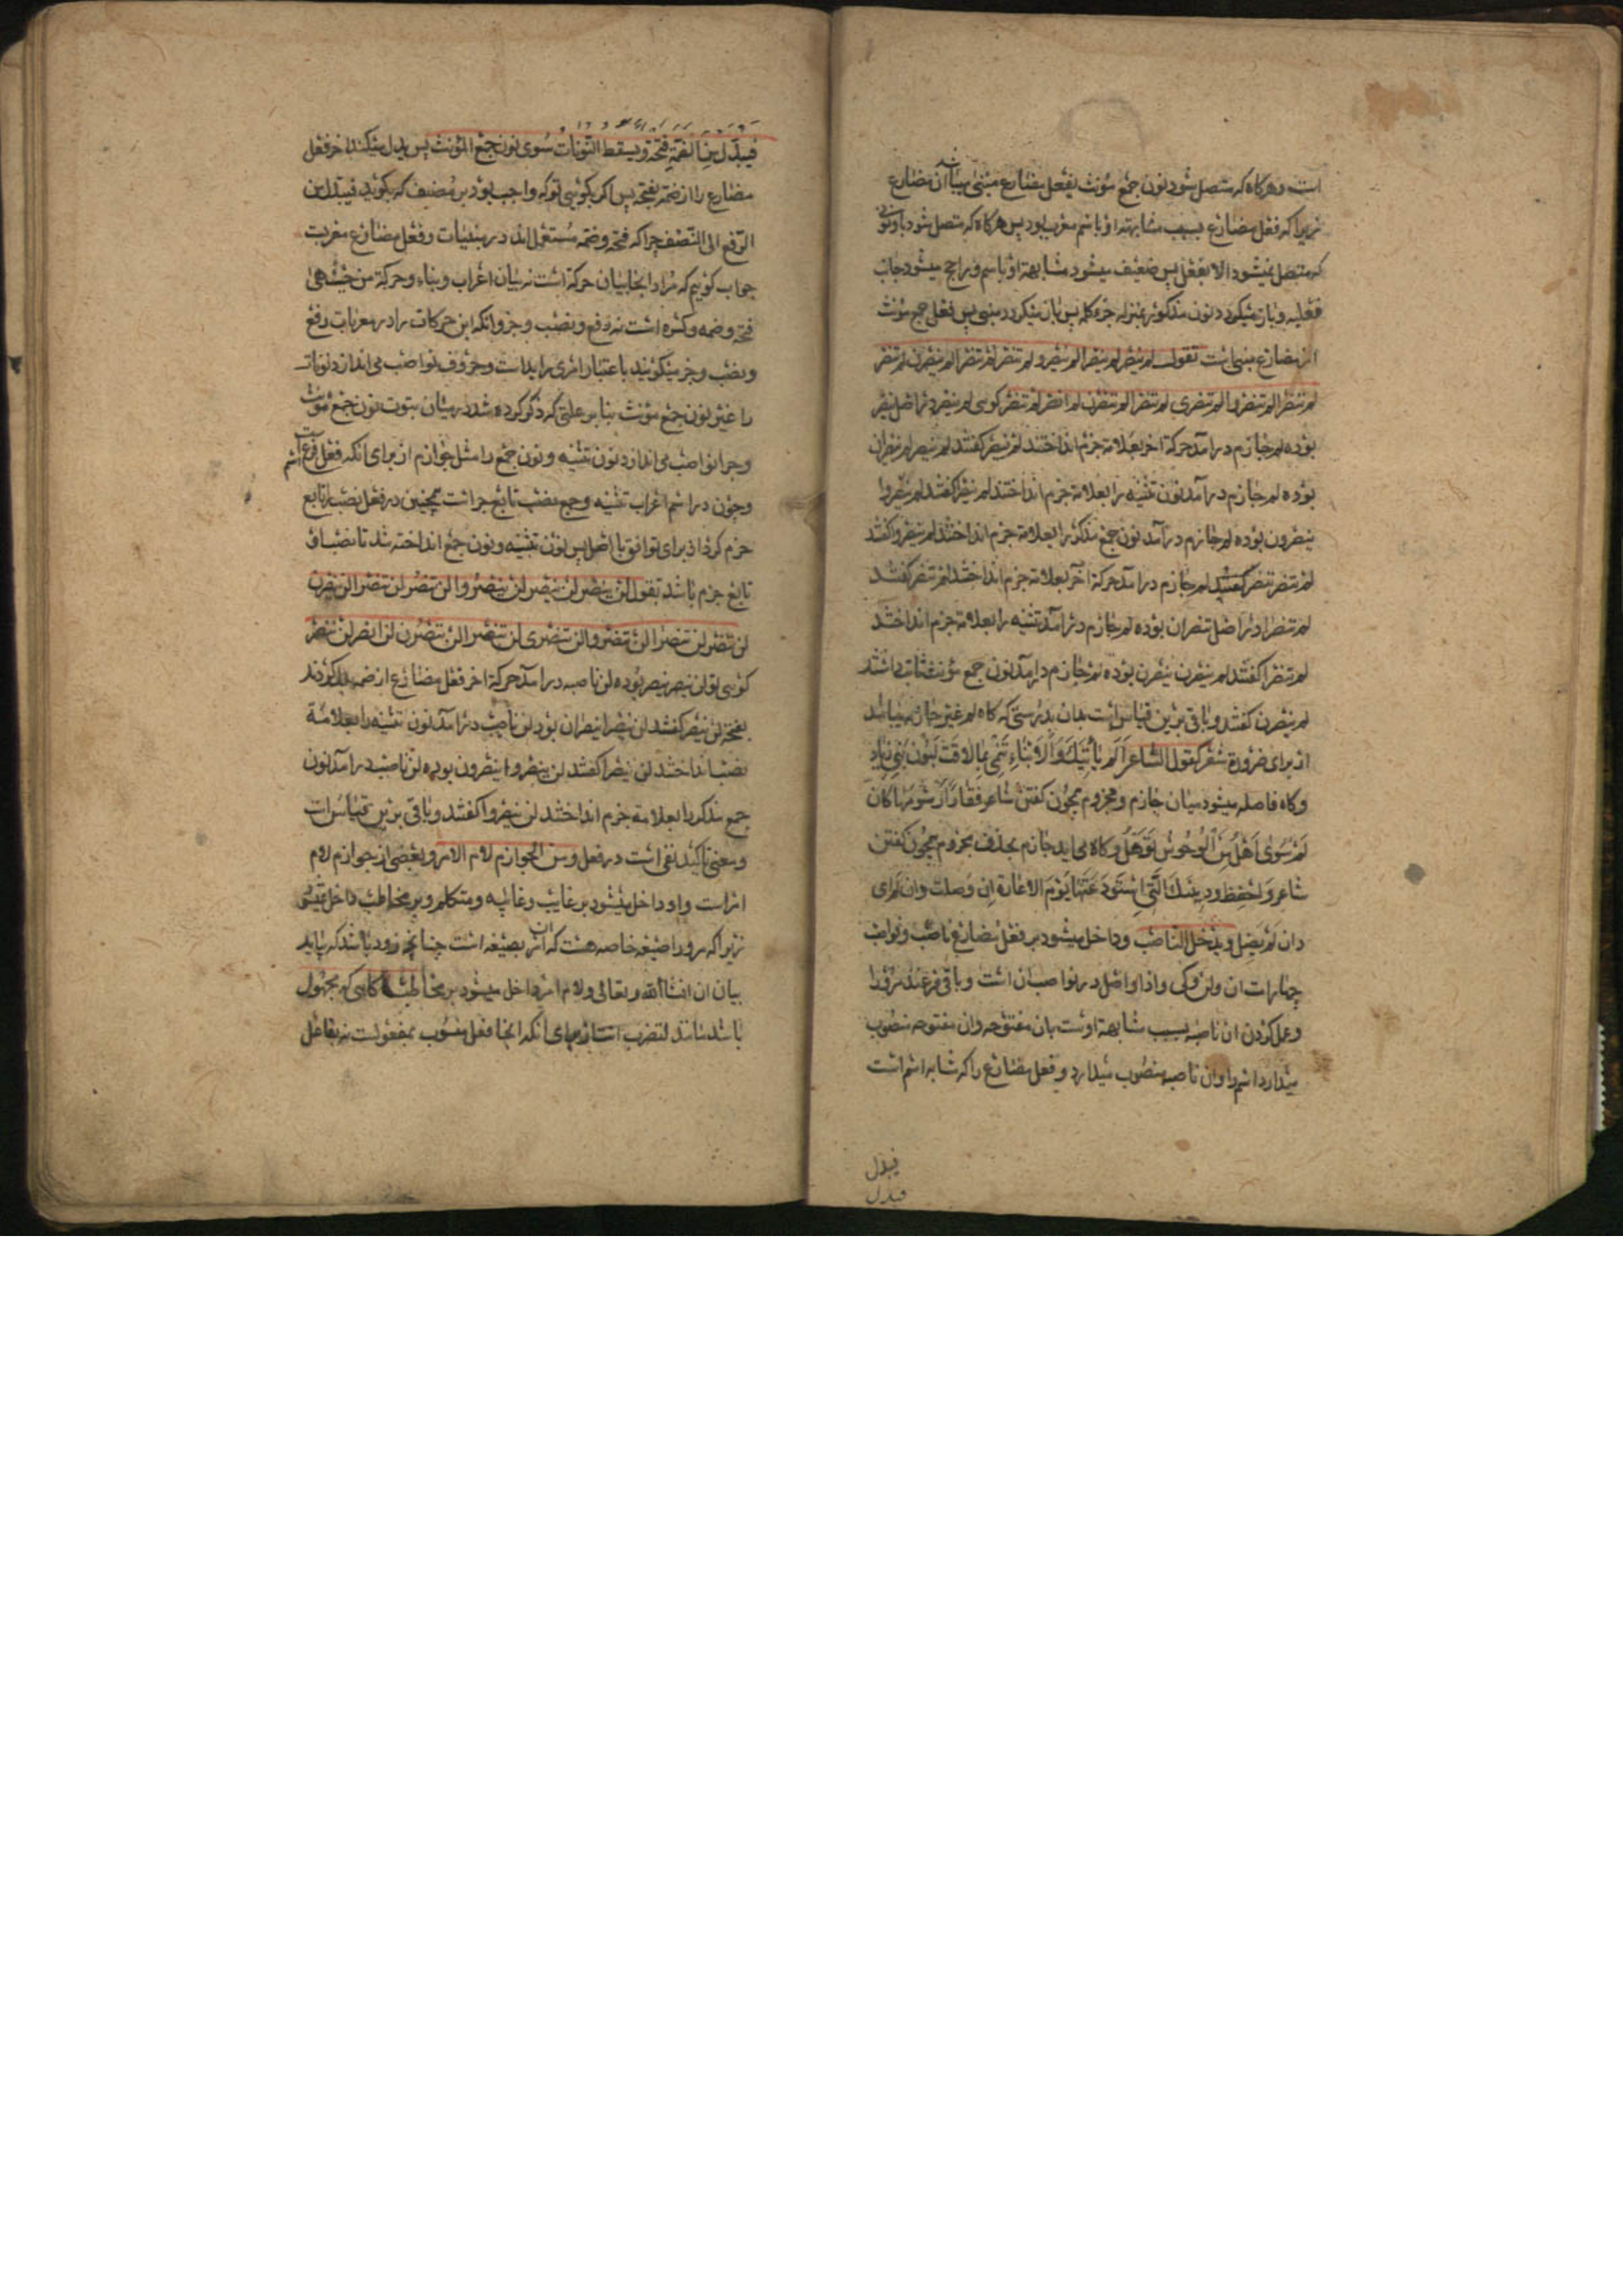 است و هر کاه که متصل شود نون جمع مؤنث بفعل مضارع مبنی
زیرا که فعل مضارع بسبب مشابهة او باسم معرب بود پس هر کاه که متصل شود باو نونی
که متصل نمیشود الا بفعل پس ضعیف میشود مشابهة او باسم و راجح میشود جانب
فعلیه و باز میکردد نون مذکور بمنزله جزء کلمه پس باز میکردد مبنی پس فعل جمع مؤنث
از مضارع مبنی است تقول لم ینصر لم ینصرا لم ینصروا لم تنصر لم تنصرا لم ینصرن لم تنصر
لم تنصرا لم تنصروا لم تنصری لم تنصرا لم تنصرن لم انصر لم ننصر کوئی لم ینصر در اصل ینصر
بوده لم جازم در آمد حرکة آخر بعلامة جزم انداختند لم ینصر کفتند لم ینصرا ینصران
بوده لم جازم در آمد نون تثنیه را بعلامة جزم انداختند لم ینصرا کفتند لم ینصروا
ینصرون بوده لم جازم در آمد نون جمع مذکر را بعلامة جزم انداختند لم ینصروا کفتند
لم تنصر تنصر لم جازم در آمد حرکة آخر بعلامة جزم انداختند لم تنصر کفتند
لم تنصرا در اصل تنصران بوده لم جازم در آمد تثنیه را بعلامة جزم انداختند
لم تنصرا کفتند لم ینصرن ینصرن بوده لم جازم در آمد نون جمع مؤنث داشتند
لم ینصرن کفتند و باقی برین قیاس است بدان بدرستی که کاه لم غیر جازم میباشد
از برای ضرورة شعر کقول الشاعر اَلَم یَأتیکَ وَالاَنباءِ تَنمی بِمالاقَت لَبُون بَنی زیاد
و کاه فاصله میشود میان جازم و مجزوم همچون کفتن شاعر رسومها کان
لم سوی اهل من الوحوش توهل و کاه می اید جازم بحذف مجزوم همچون کفتن
شاعر واحفظ ودیعتک التی استودعتها یوم الاعازة ان وصلت وان لم ای
وان لم یصل ویدخل الناصب و داخل میشود بر فعل مضارع ناصب و نواصب
چهارات ان ولن وکی واذا و اصل در نواصب ان است و باقی فرعند مرورا
و عمل کردن ان ناصبه بسبب مشابهة اوست بان مفتوحه وان مفتوحه منصوب
میدارد اسم را وان ناصبه منصوب میدارد و فعل مضارع را که مشابه اسم است
فیبدل
فیبدل
فیبدل من الضمة فتحة ویسقط النونات سوی نون جمع المؤنث پس بدل میکند آخر فعل
مضارع را از ضمه بفتحه پس اکر بکویی تو که واجب بود بر مصنف که بکوید فیبدل من
الرفع الی النصب چرا که فتحه و ضمه مستعمل اند در مبنیات و فعل مضارع معربت
جواب کوییم که مراد اینجا بیان حرکة است نه بیان اعراب و بناء و حرکة من حیث هی
فتحه و ضمه و کسره است نه رفع و نصب و جر و انکه این حرکات را در معربات رفع
و نصب و جر میکویند باعتبار امری زاید است و حروف نواصب می اندازد نونات
را غیر نون جمع مؤنث بنا بر علتی که ذکر کرده شد در بیان ثبوت نون جمع مؤنث
و چرا نواصب می اندازد نون تثنیه و نون جمع را مثل جوازم از برای انکه فعل فرع اسم
و چون در اسم اعراب تثنیه و جمع نصب تابع جر است همچنین در فعل نصب را تابع
جزم کرد از برای توافق با اصل پس نون تثنیه و نون جمع انداخته شد تا نصب او
تابع جزم باشد تقول لن ینصر لن ینصرا لن ینصروا لن تنصر لن تنصرا لن ینصرن
لن تنصر لن تنصرا لن تنصروا لن تنصری لن تنصرا لن تنصرن لن انصر لن ننصر
کوئی تو لن ینصر ینصر بوده لن ناصبه در آمد حرکة آخر فعل مضارع از ضمه بدل کردند
بفتحه لن ینصر کفتند لن ینصرا ینصران بود لن ناصب در آمد نون تثنیه را بعلامة
نصب انداختند لن ینصرا کفتند لن ینصروا ینصرون بوده لن ناصب در آمد نون
جمع مذکر را بعلامة جزم انداختند لن ینصروا کفتند و باقی برین قیاس است
و معنی تاکید نفی است در فعل ومن الجوازم لام الامر و بعضی از جوازم لام
امر است و او داخل میشود بر غایب و غایبه و متکلم و بر مخاطب داخل نمیشود
زیرا که مرورا صیغه خاصه هست که ان امر بصیغه است چنانچه زود باشد که بیاید
بیان ان انشاالله تعالی و لام امر داخل میشود بر مخاطب کاهی که مجهول
باشد مانند لتضرب انت از برای انکه اینجا فعل منسوب بمفعولست نه بفاعل